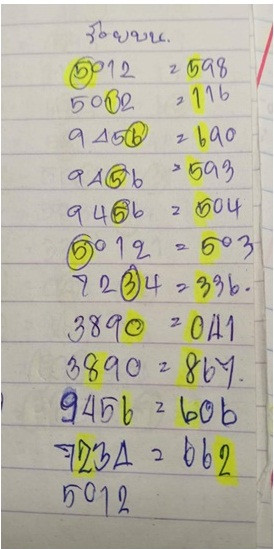 ร้อยบน.
5012 = 598
5012 = 116
9456 = 690
9456 = 593
9456 = 504
5012 = 503
7234 = 336.
3890 = 041
3890 = 867.
9456 = 606
7234 = 662
5012